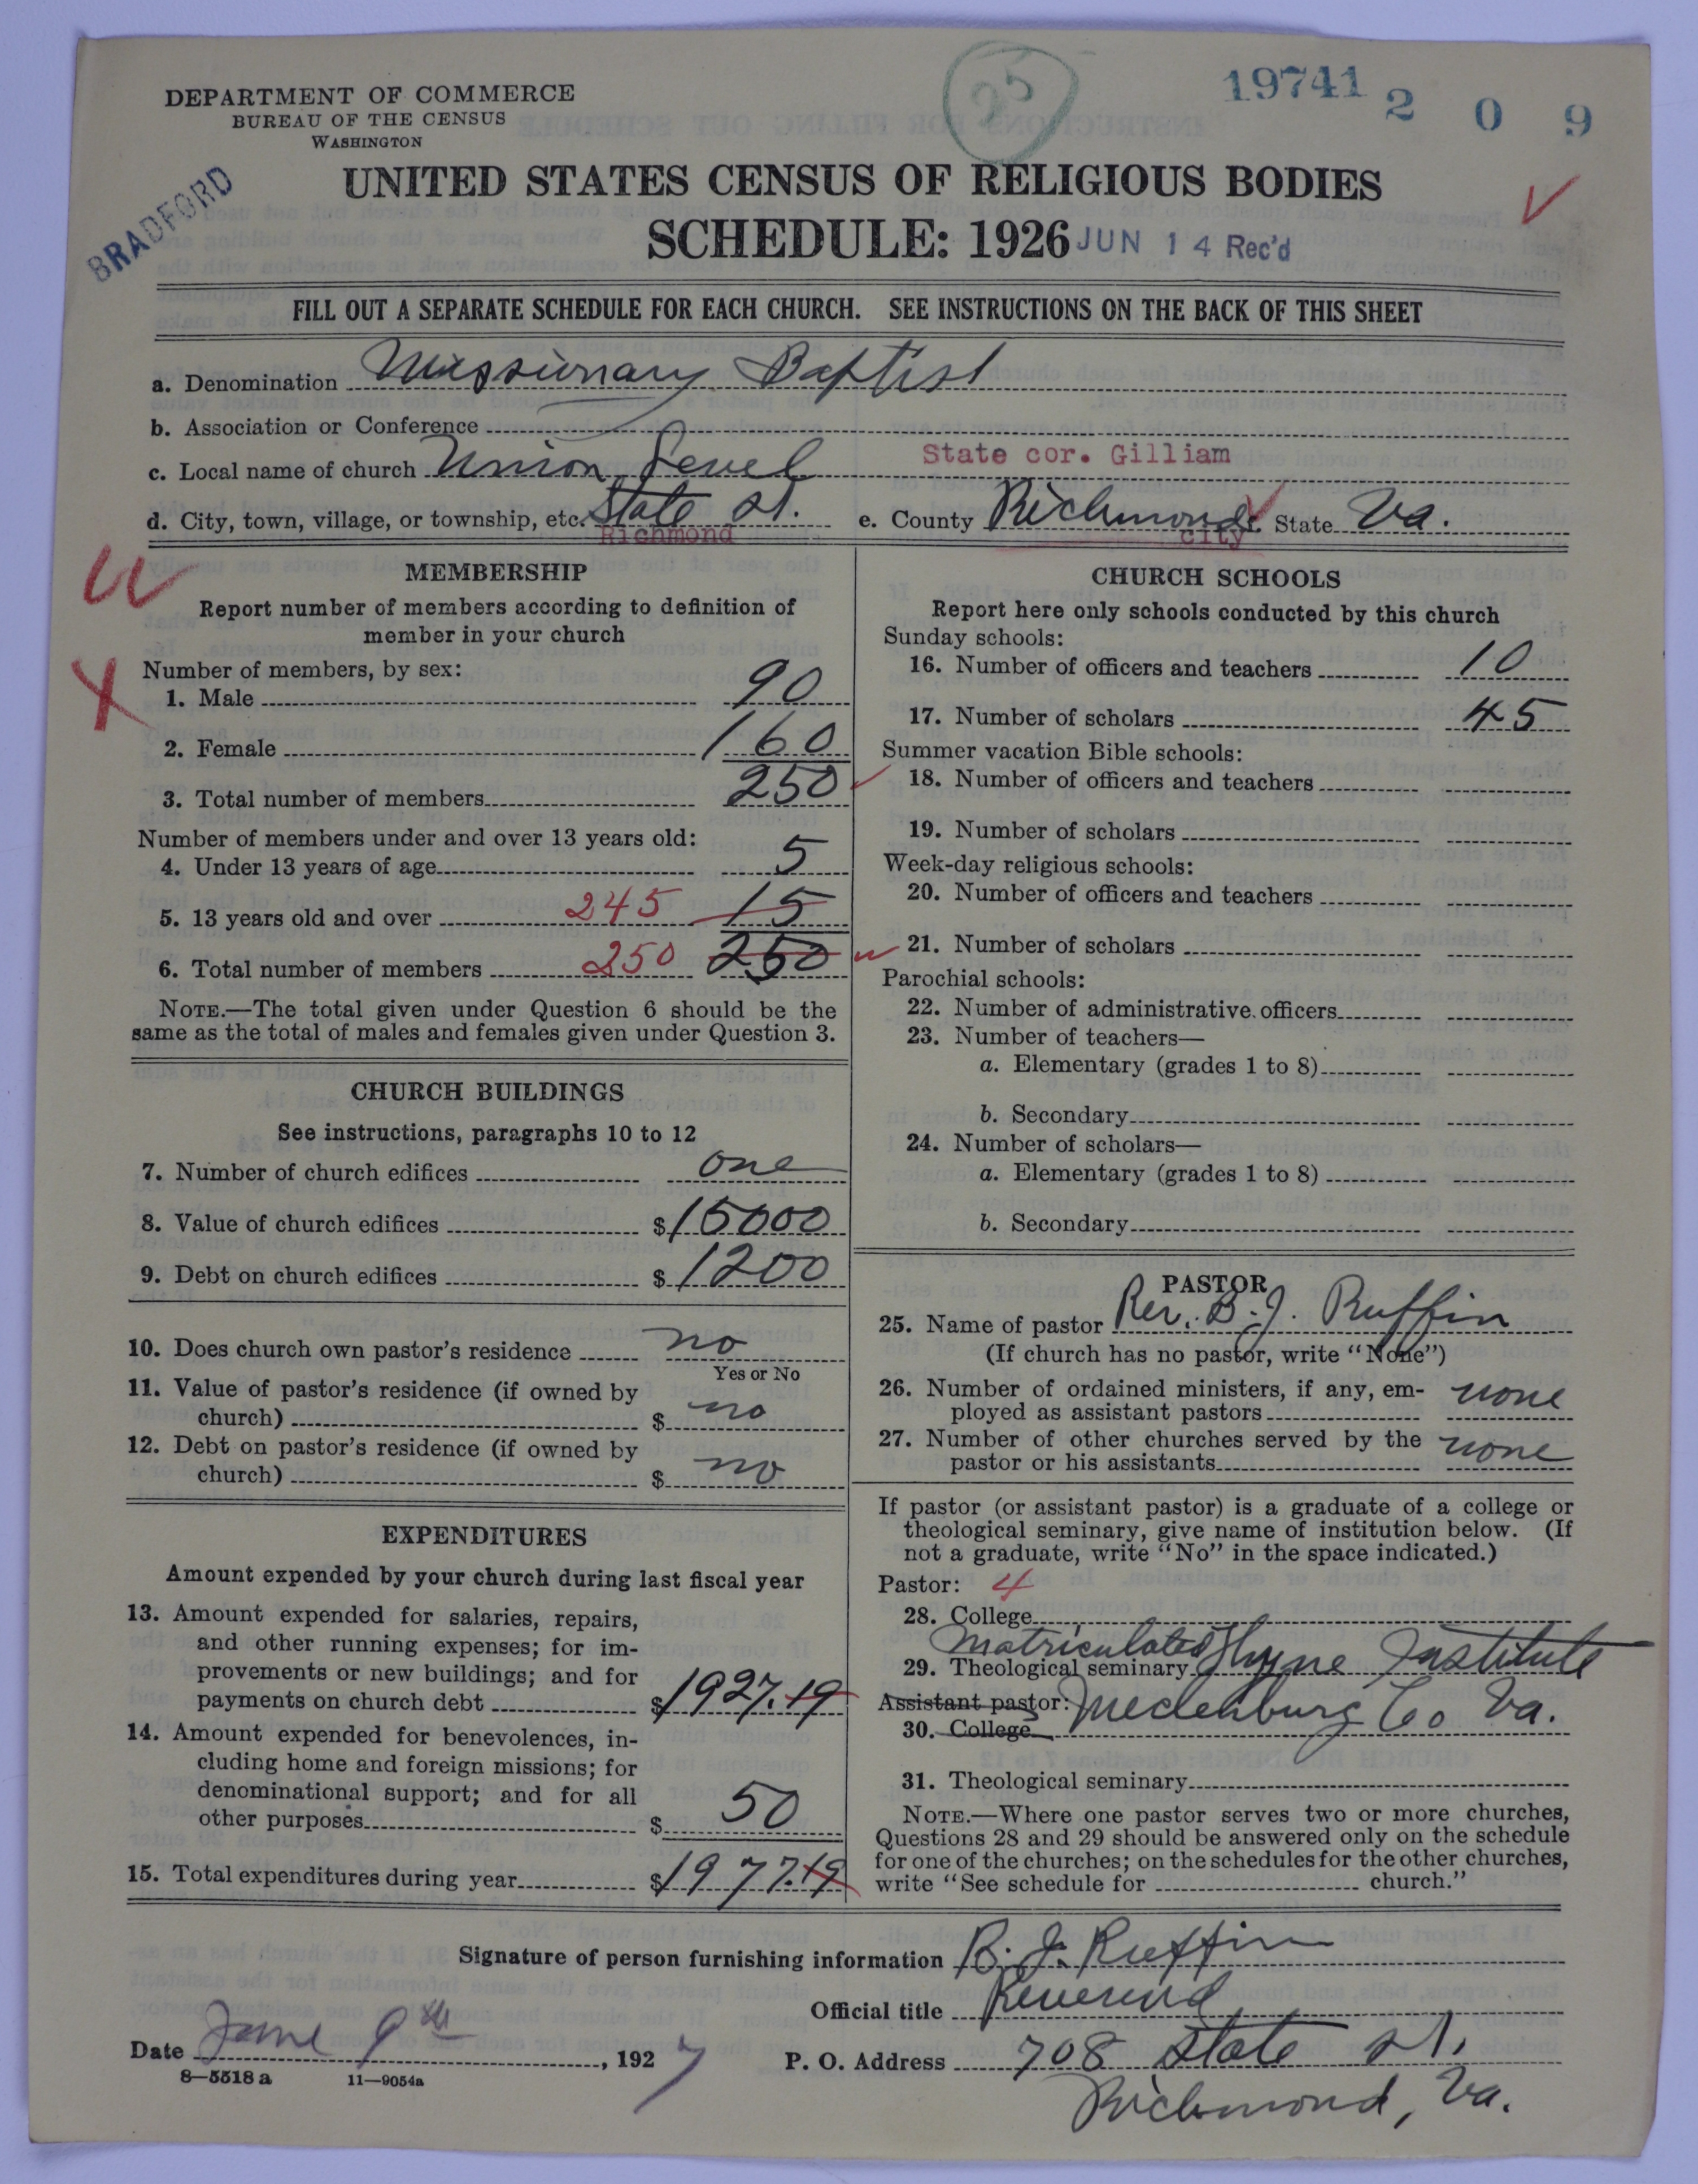 25
19741
2 0 9
DEPARTMENT OF COMMERCE
BUREAU OF THE CENSUS
WASHINGTON
BRADFORD
UNITED STATES CENSUS OF RELIGIOUS BODIES
SCHEDULE: 1926
JUN 14 Rec'd
FILL OUT A SEPARATE SCHEDULE FOR EACH CHURCH. SEE INSTRUCTIONS ON THE BACK OF THIS SHEET
a. Denomination Missionary Baptist
b. Association or Conference
c. Local name of church Union Level State cor. Gilliam
d. City, town, village, or township, etc. State St. e. County Richmond State Va.
Richmond city
MEMBERSHIP
Report number of members according to definition of
member in your church
Number of members, by sex:
1. Male 90
2. Female 160
3. Total number of members 250
Number of members under and over 13 years old:
4. Under 13 years of age 5
5. 13 years old and over 245 15
6. Total number of members 250 250
NOTE.—The total given under Question 6 should be the
same as the total of males and females given under Question 3.
CHURCH BUILDINGS
See instructions, paragraphs 10 to 12
7. Number of church edifices one
8. Value of church edifices $15000
9. Debt on church edifices $1200
10. Does church own pastor's residence no
Yes or No
11. Value of pastor's residence (if owned by
church) $ no
12. Debt on pastor's residence (if owned by
church) $ no
EXPENDITURES
Amount expended by your church during last fiscal year
13. Amount expended for salaries, repairs,
and other running expenses; for im-
provements or new buildings; and for
payments on church debt $1927.19
14. Amount expended for benevolences, in-
cluding home and foreign missions; for
denominational support; and for all
other purposes $ 50
15. Total expenditures during year $1977.19
CHURCH SCHOOLS
Report here only schools conducted by this church
Sunday schools:
16. Number of officers and teachers 10
17. Number of scholars 45
Summer vacation Bible schools:
18. Number of officers and teachers
19. Number of scholars
Week-day religious schools:
20. Number of officers and teachers
21. Number of scholars
Parochial schools:
22. Number of administrative officers
23. Number of teachers—
a. Elementary (grades 1 to 8)
b. Secondary
24. Number of scholars—
a. Elementary (grades 1 to 8)
b. Secondary
PASTOR
25. Name of pastor Rev. B. J. Ruffin
(If church has no pastor, write "None")
26. Number of ordained ministers, if any, em-
ployed as assistant pastors none
27. Number of other churches served by the
pastor or his assistants none
If pastor (or assistant pastor) is a graduate of a college or
theological seminary, give name of institution below. (If
not a graduate, write "No" in the space indicated.)
Pastor: 4
28. College
matriculated
29. Theological seminary Institute
Assistant pastor: Meclenburg Co Va.
30. College
31. Theological seminary
NOTE.—Where one pastor serves two or more churches,
Questions 28 and 29 should be answered only on the schedule
for one of the churches; on the schedules for the other churches,
write "See schedule for church."
Signature of person furnishing information B. J. Ruffin
Official title Reverend
Date June 9th, 1927 P. O. Address 708 State St.
8—5518 a 11—9054a
Richmond, Va.